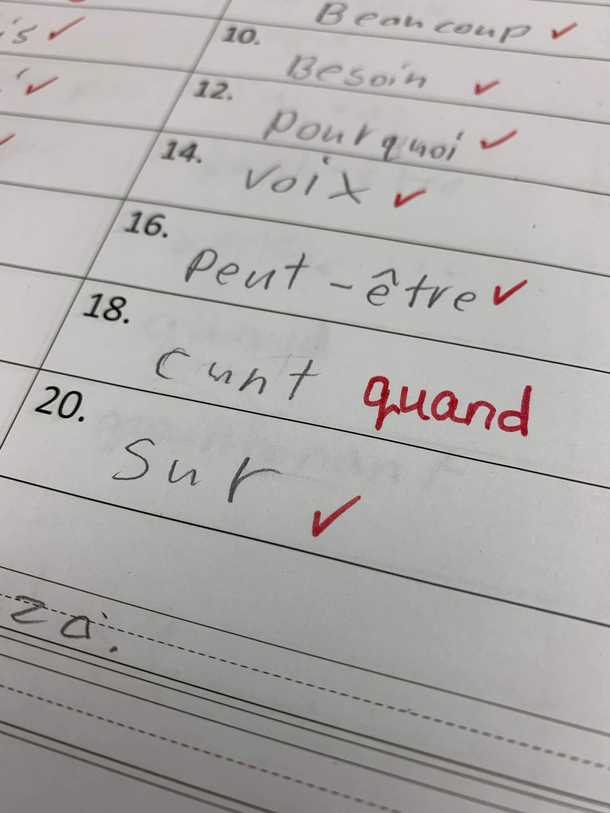 is
Beaucoup
10.
Besoin
12.
Pourquoi
14.
Voix
16.
Peut-être
18.
cunt quand
20.
Sur